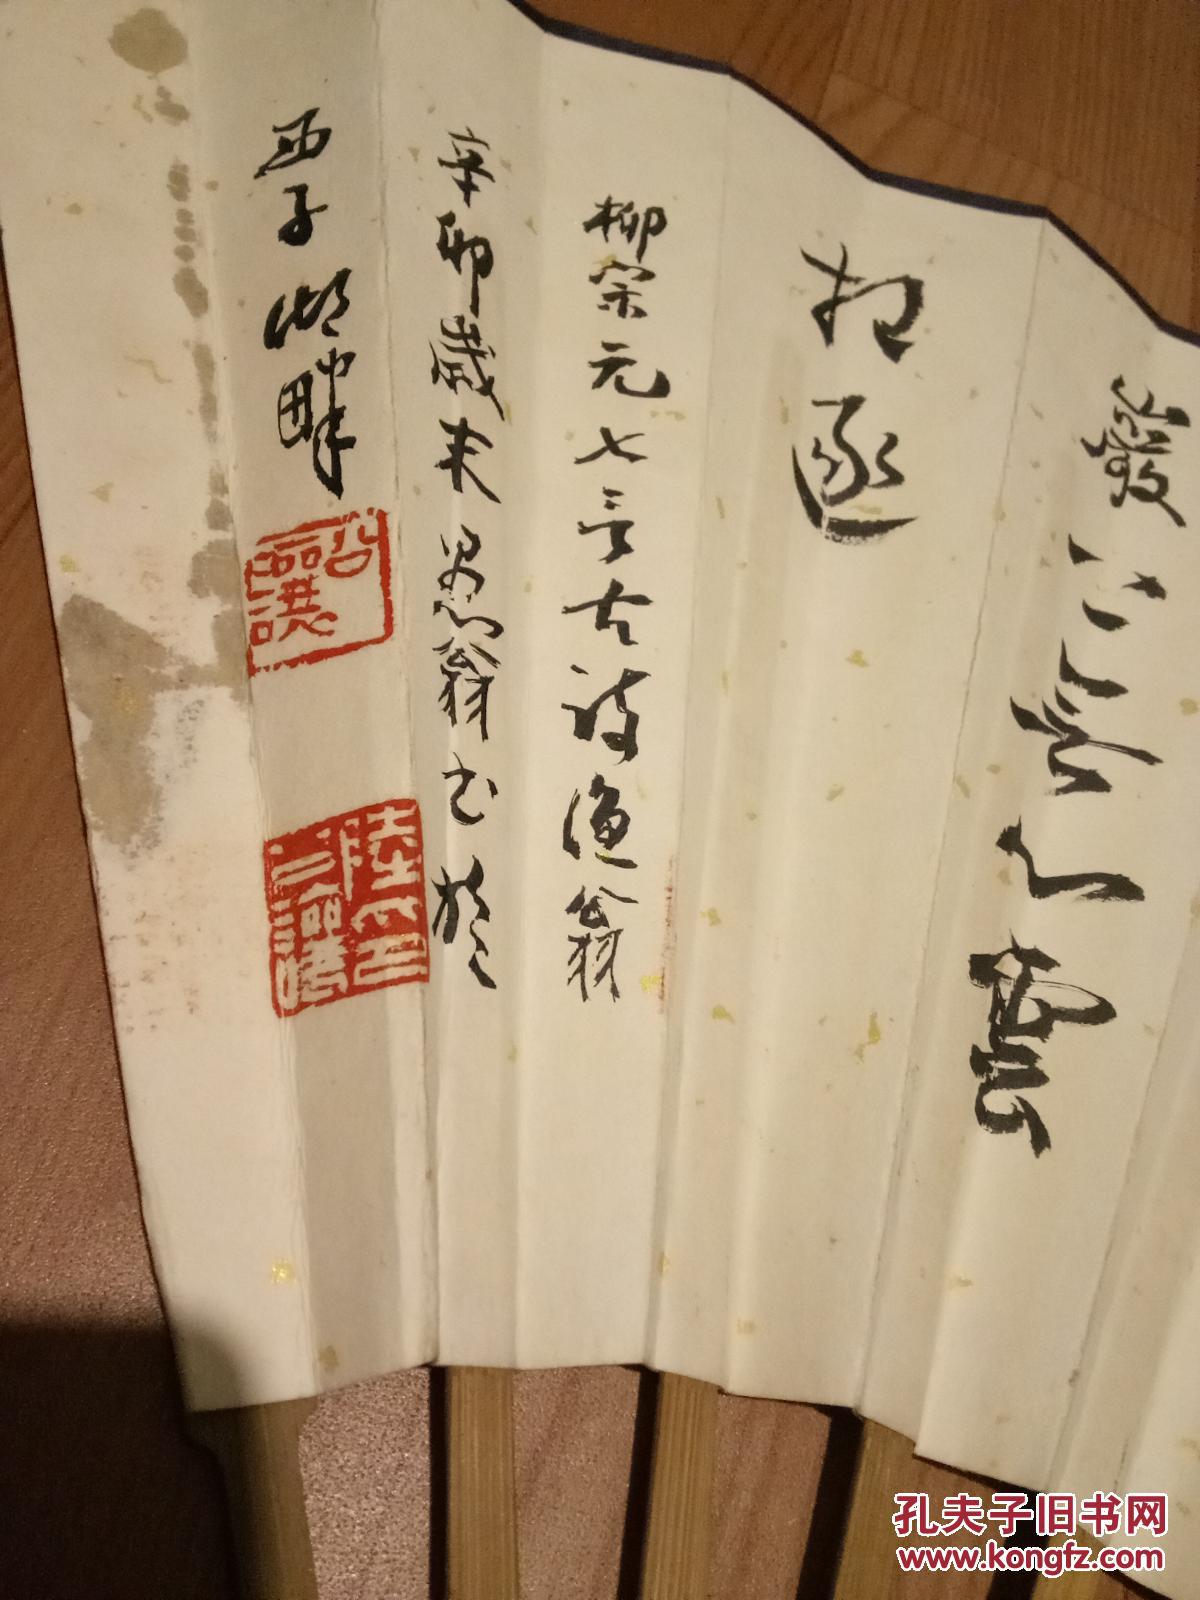 巖上無心雲
相逐
柳宗元七言古詩漁翁
辛卯歲末愚翁书於
西子湖畔
孔夫子旧书网
www.kongfz.com